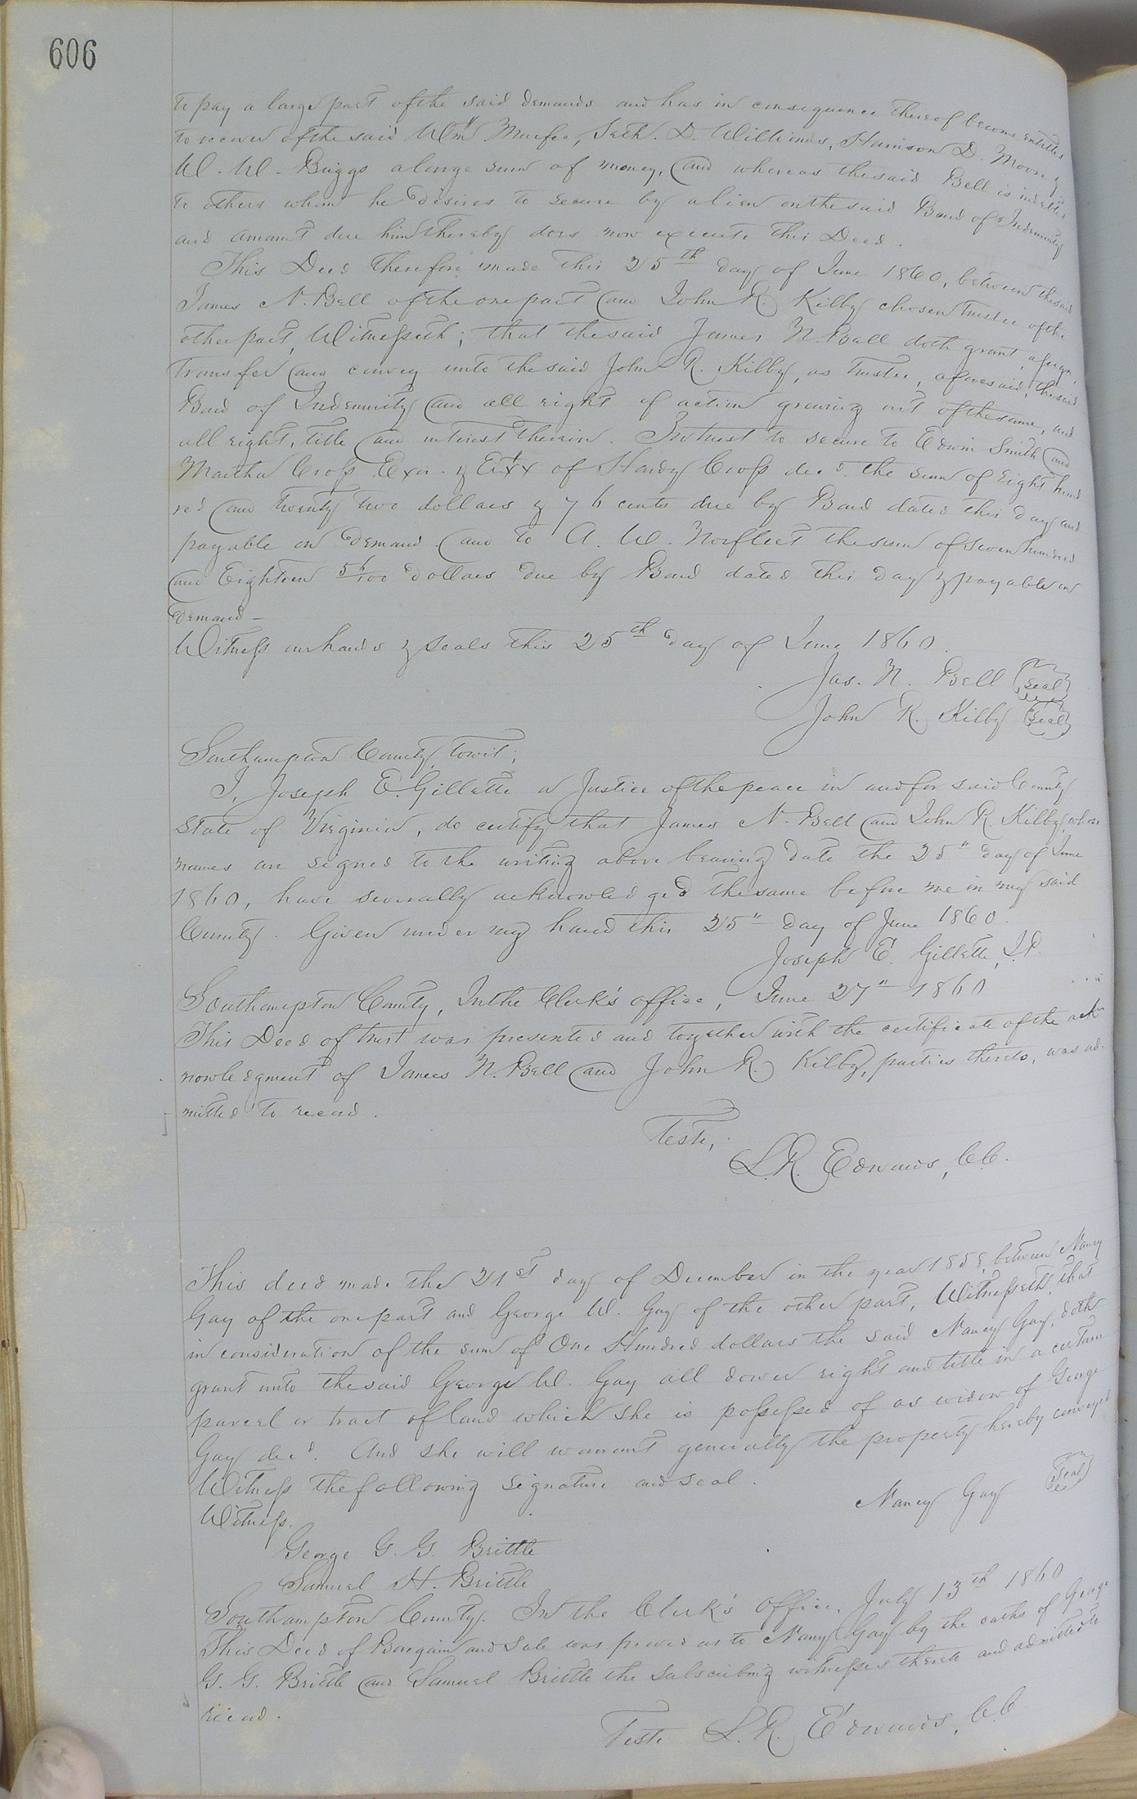 606
to pay a large part of the said demands and has in consequence thereof become entitled
to recover of the said Wm Murfee, Seth. D. Williams, Harrison D. Moore &
W. W. Briggs a large sum of money, and whereas the said Bell is indebted
to others whom he desires to secure by a lien on the said Bond of Indemnity
and amount due him thereby does now execute this Deed.
This Deed therefore made this 25th day of June 1860, between the said
James N. Bell of the one part and John R Kilby chosen Trustee of the
other part, Witnesseth; that the said James N. Bell doth grant, assign,
transfer and convey unto the said John R. Kilby, as Trustee, aforesaid, the said
Bond of Indemnity and all right of action growing out of the same, and
all right, title and interest therein. In trust to secure to Edwin Smith and
Martha Cross Exor. & Extx of Hardy Cross decd. the sum of Eight hund
red and twenty two dollars & 76 cents due by Bond dated this day and
payable on demand and to A. W. Norfleet the sum of seven hundred
and Eighteen 56/100 dollars due by Bond dated this day & payable on
demand—
Witness our hands & seals this 25th day of June 1860.
Jas. N. Bell (Seal)
John R. Kilby (Seal)
Southampton County, towit;
I, Joseph E. Gillette a Justice of the peace in and for said County
State of Virginia, do certify that James N. Bell and John R Kilby, whose
names are signed to the writing above bearing date the 25" day of June
1860, have severally acknowledged the same before me in my said
County. Given under my hand this 25" day of June 1860.
Joseph E. Gillette, J.P.
Southampton County, In the Clerk's office, June 27" 1860
This Deed of trust was presented and together with the certificate of the ack-
nowledgment of James N. Bell and John R Kilby, parties thereto, was ad-
mitted to record.
Teste,
L. R. Edwards, C.C.
This deed made the 21st day of December in the year 1858, between Nancy
Gay of the one part and George W. Gay of the other part, Witnesseth, that
in consideration of the sum of One Hundred dollars the said Nancy Gay, doth
grant unto the said George W. Gay all dower right and title in a certain
parcel or tract of land which she is possessed of as widow of George
Gay decd. And she will warrant generally the property hereby conveyed
Witness the following signature and seal.
Nancy Gay (Seal)
Witness.
George G. G. Brittle
Samuel H. Brittle
Southampton County. In the Clerk's Office. July 13th 1860
This Deed of Bargain and Sale was proved as to Nancy Gay by the oaths of George
G. G. Brittle and Samuel Brittle the subscribing witnesses thereto and admitted to
record.
Teste L. R. Edwards, C.C